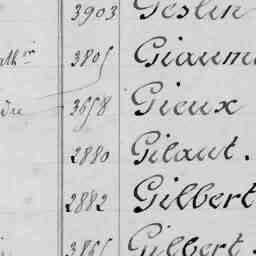 3903 Geslin
3805 Giaum
3658 Gieux
2880 Gilaut.
2882 Gilbert
3865 Gilbert.